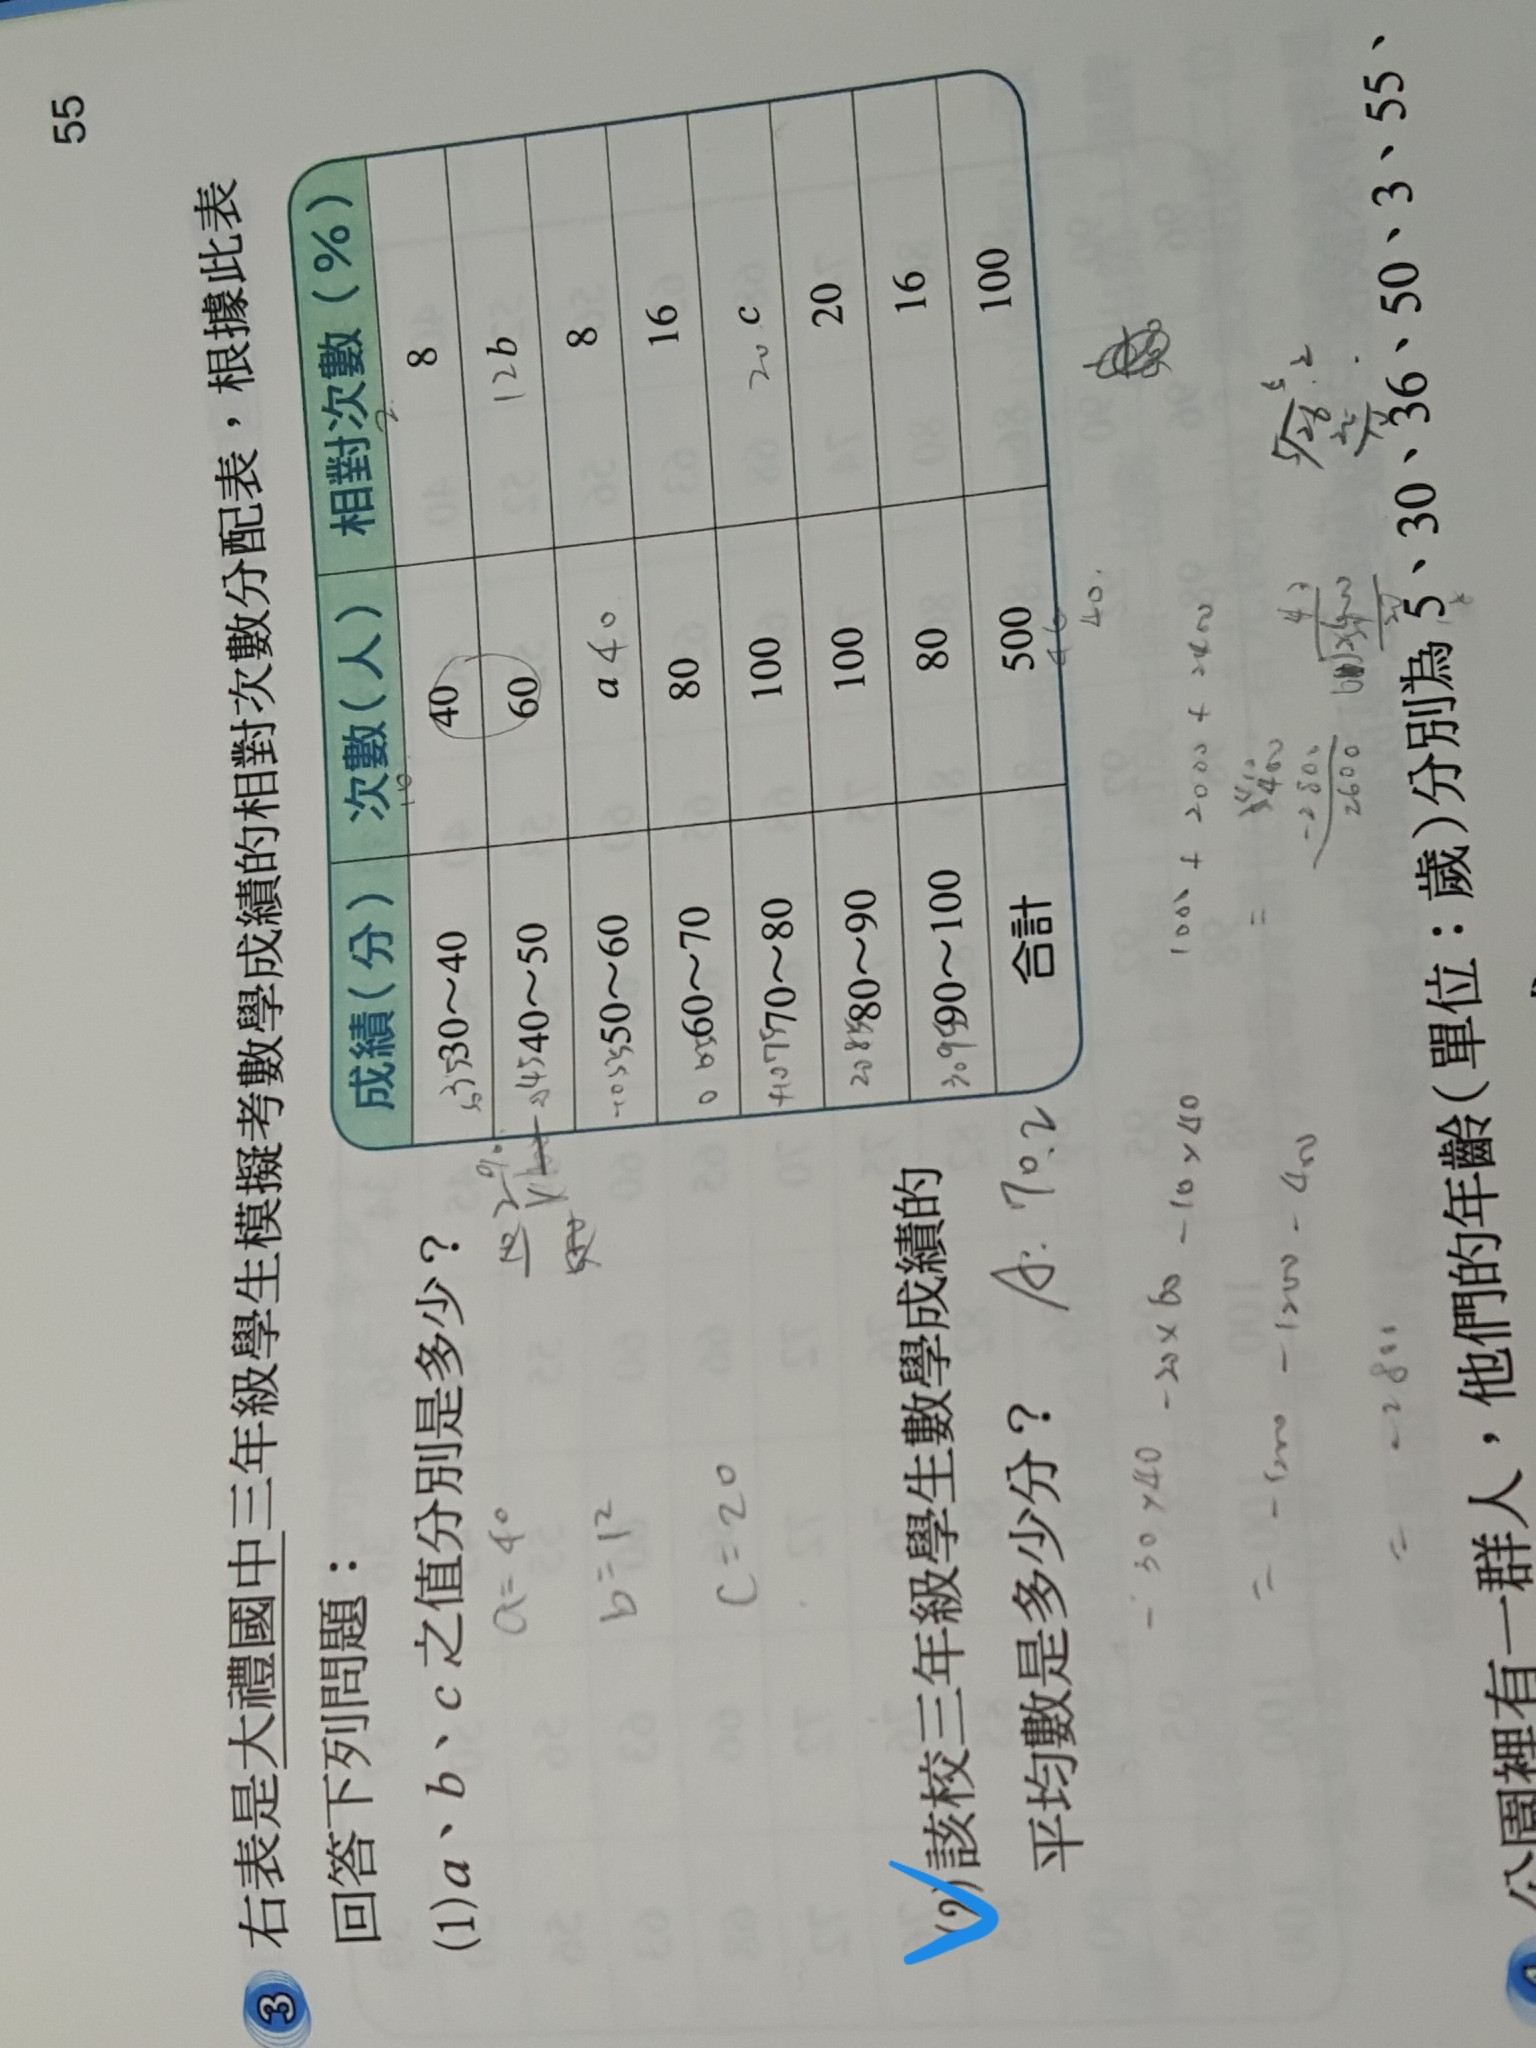 55
3 右表是大禮國中三年級學生模擬考數學成績的相對次數分配表，根據此表
回答下列問題：
(1)a、b、c之值分別是多少？
a=40
b=12
c=20
成績(分) 次數(人) 相對次數(%)
30～40 40 8
40～50 60 12 b
50～60 a 40 8
60～70 80 16
70～80 100 20 c
80～90 100 20
90～100 80 16
合計 500 100
(2)該校三年級學生數學成績的
平均數是多少分？
A: 70.2
-30×40 -20×60 -10×40
= -1200 -1200 -400
= -2800
1000 + 2000 + 2400
=
5400
-2800
2600
40
公園裡有一群人，他們的年齡(單位：歲)分別為5、30、36、50、3、55、